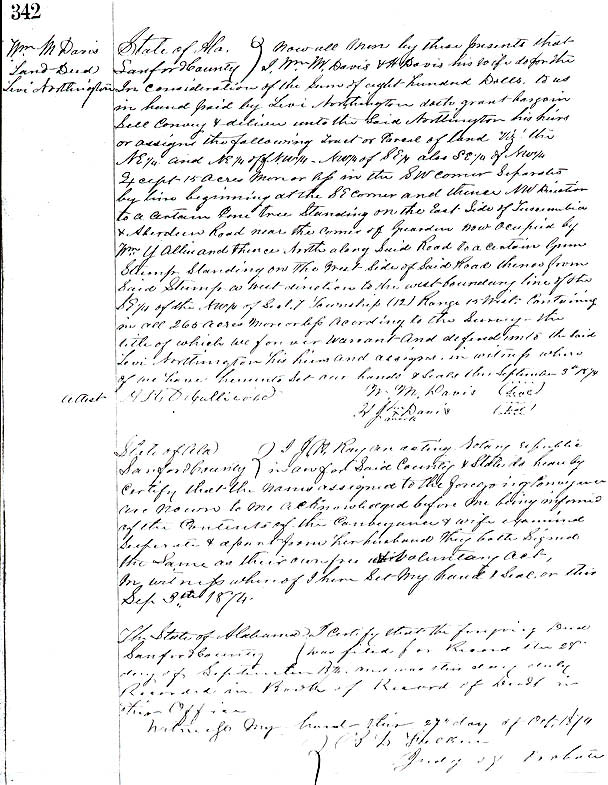 342
Wm M Davis
Land Deed
Levi Northington
State of Ala. ) Now all Men by these presents that
Sanford County ) I, Wm M. Davis & H Davis his wife do for the
In consideration of the Sum of eight hundred Dolls. to us
in hand paid by Levi Northington doeth grant bargain
Sell Convey & deliver unto the Said Northington his heirs
or assigns the following Tract or Parcel of land Viz' the
NE¼ and NE¼ of NW¼ - NW¼ of SE¼ also SE¼ of NW¼
Except 15 Acres More or less in the SW Corner Seperated
by line beginning at the SE Corner and thence NW Direction
to a certain Pine tree Standing on the East Side of Tuscumbia
& Aberdeen Road near the corner of Geardin now Occupied by
Wm Y Allen and thence North along Said Road to a Certain Gum
Stump Standing on the West Side of Said Road thence from
Said Stump a West direction to the west boundary line of the
SE¼ of the NW¼ of Sec 17 Township (12) Range 15 West. Containing
in all 265 Acres More or less According to the Survey the
title of which we for ever Warrant and defend unto the Said
Levi Northington his heirs and assigns. in witness where
of we have hereunto Set our hands & Seals this September 3d 1874
attest
W. M. Davis (Seal)
H Davis (Seal)
her
mark
State of Ala ) I J. R. Ray an acting Notary republic
Sanford County ) in and for Said County & State do hearby
certify that the names assigned to the foregoing Conveyance
are Nown to me acknowledged before me being informed
of the Contents of the Conveyance & wife examined
Seperate & apart from her husband they both Signed
the Same as their own free Voluntary Act,
In witness whereof I here Set My hand & Seal on this
Sep. 3th 1874.
The State of Alabama ) I certify that the foregoing Deed
Sanford County ) was filed for Record the 28th
day of September 1874 and was this day duly
Recorded in Book of Record of Deeds in
this Office
Witness My hand this 27th day of Oct. 1874
Judg of Probate